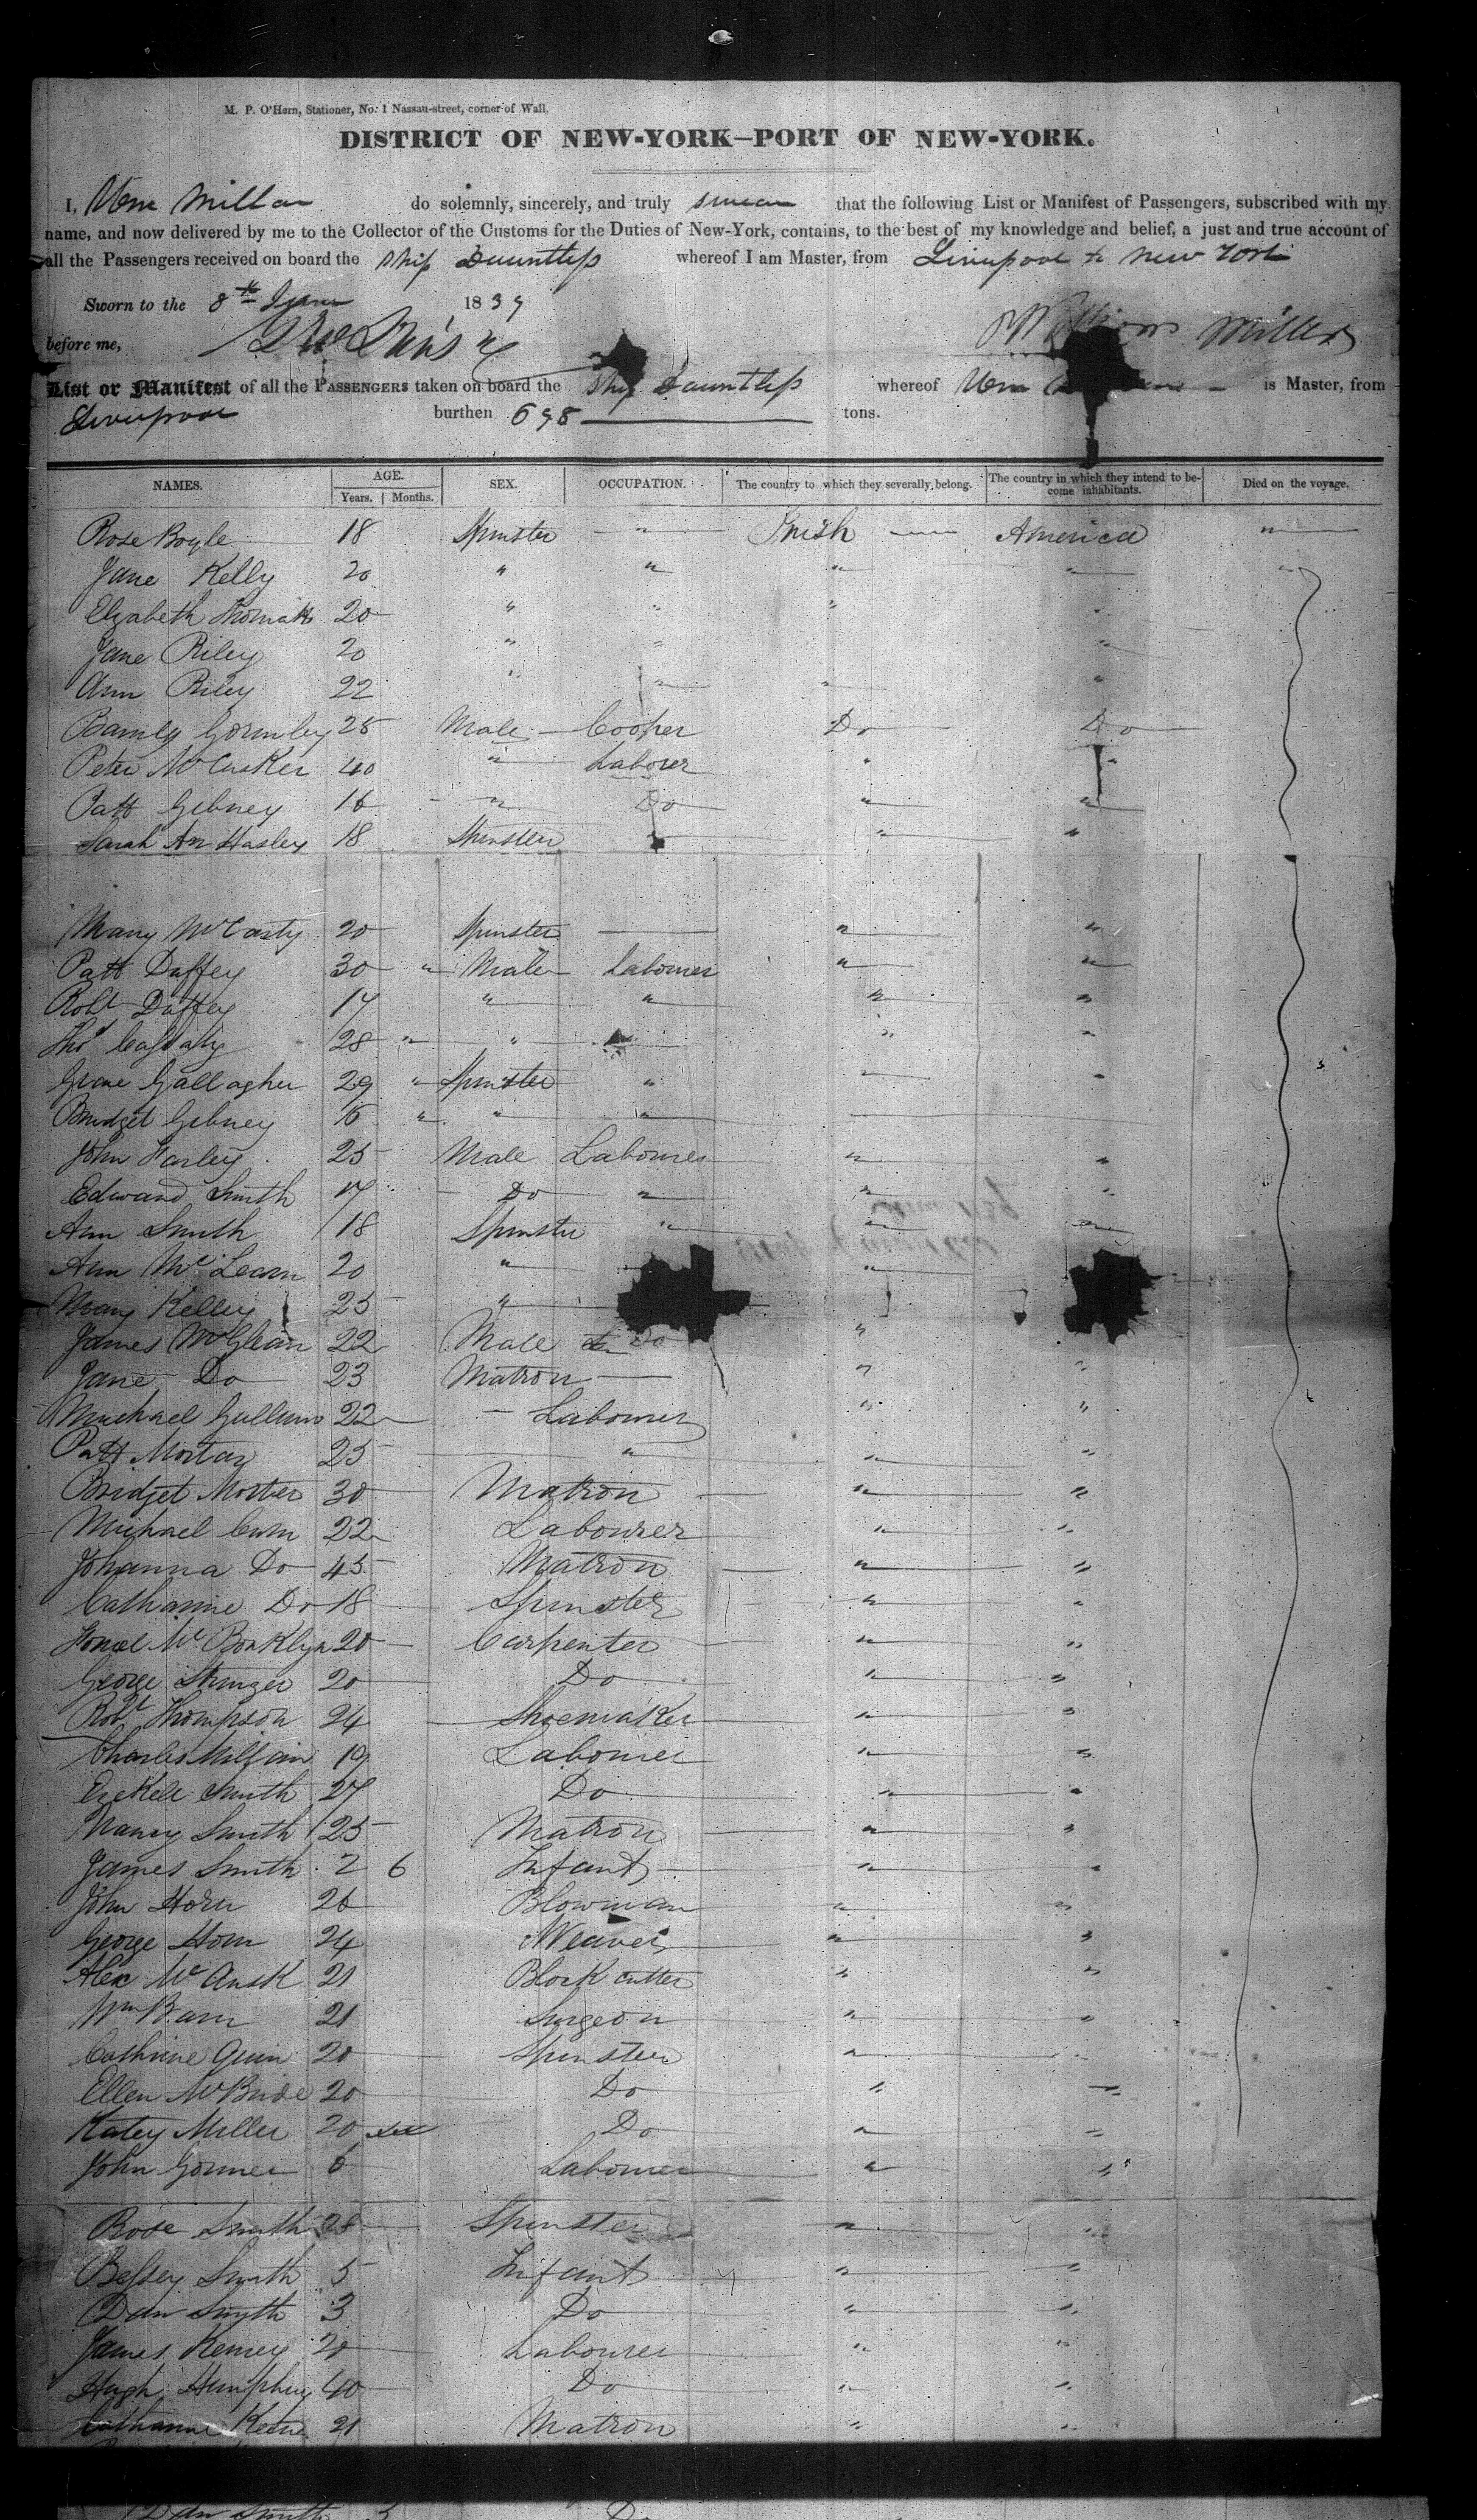 M. P. O'Hern, Stationer, No. 1 Nassau-street, corner of Wall.
DISTRICT OF NEW-YORK—PORT OF NEW-YORK.
I, Wm Miller do solemnly, sincerely, and truly swear that the following List or Manifest of Passengers, subscribed with my
name, and now delivered by me to the Collector of the Customs for the Duties of New-York, contains, to the best of my knowledge and belief, a just and true account of
all the Passengers received on board the ship Dauntless whereof I am Master, from Liverpool to New York
Sworn to the 8th June 1839
before me, William Miller
List or Manifest of all the PASSENGERS taken on board the Ship Dauntless whereof Wm is Master, from
Liverpool burthen 698 tons.
NAMES. AGE. SEX. OCCUPATION. The country to which they severally belong. The country in which they intend to be- Died on the voyage.
Years. Months. come inhabitants.
Rose Boyle 18 Spinster " Irish America "
Jane Kelly 20 " " " " "
Elizabeth 20 " " " "
Jane Riley 20 " " "
Ann Riley 22 " " " "
Gormley 25 Male Cooper Do Do
Peter McCusker 40 " Laborer " "
Patt Gibney 16 " Do " "
Sarah An Hasley 18 Spinster " "
Mary McCarty 20 Spinster " "
Patt Duffey 30 " Male Labourer " "
Robt Duffey 17 " " " "
Thos Cassaty 28 " " " "
Grace Gallagher 29 " Spinster " " "
Bridget Gibney 16 " " "
John Farley 25 Male Labourer " "
Edward Smith 17 Do " " "
Ann Smith 18 Spinster " " "
Ann McLearn 20 " "
Mary Kelley 25 "
James McGlean 22 Male Do " "
Jane Do 23 Matron " "
Michael 22 Labourer " "
Patt 25 " " "
Bridget 30 Matron " "
Michael 22 Labourer " "
Johanna Do 45 Matron " "
Catharine Do 18 Spinster " "
20 Carpenter " "
George Stringer 20 Do " "
Robt Thompson 24 Shoemaker " "
Charles 19 Labourer " "
Ezekell Smith 27 Do " "
Nancy Smith 25 Matron " "
James Smith 2 6 Infant " "
John Horn 26 Plowman " "
George Horn 24 Weaver " "
Alex 21 Block cutter " "
Wm 21 Surgeon " "
Cathrine Quin 20 Spinster " "
Ellen McBride 20 Do " "
Katey Miller 20 Do " "
John 6 Labourer " "
Rose Smith 28 Spinster " "
Bessey Smith 5 Infant " "
Dan Smyth 3 Do " "
James 20 Labourer " "
Hugh Humphrey 40 Do " "
Catharine 21 Matron " "